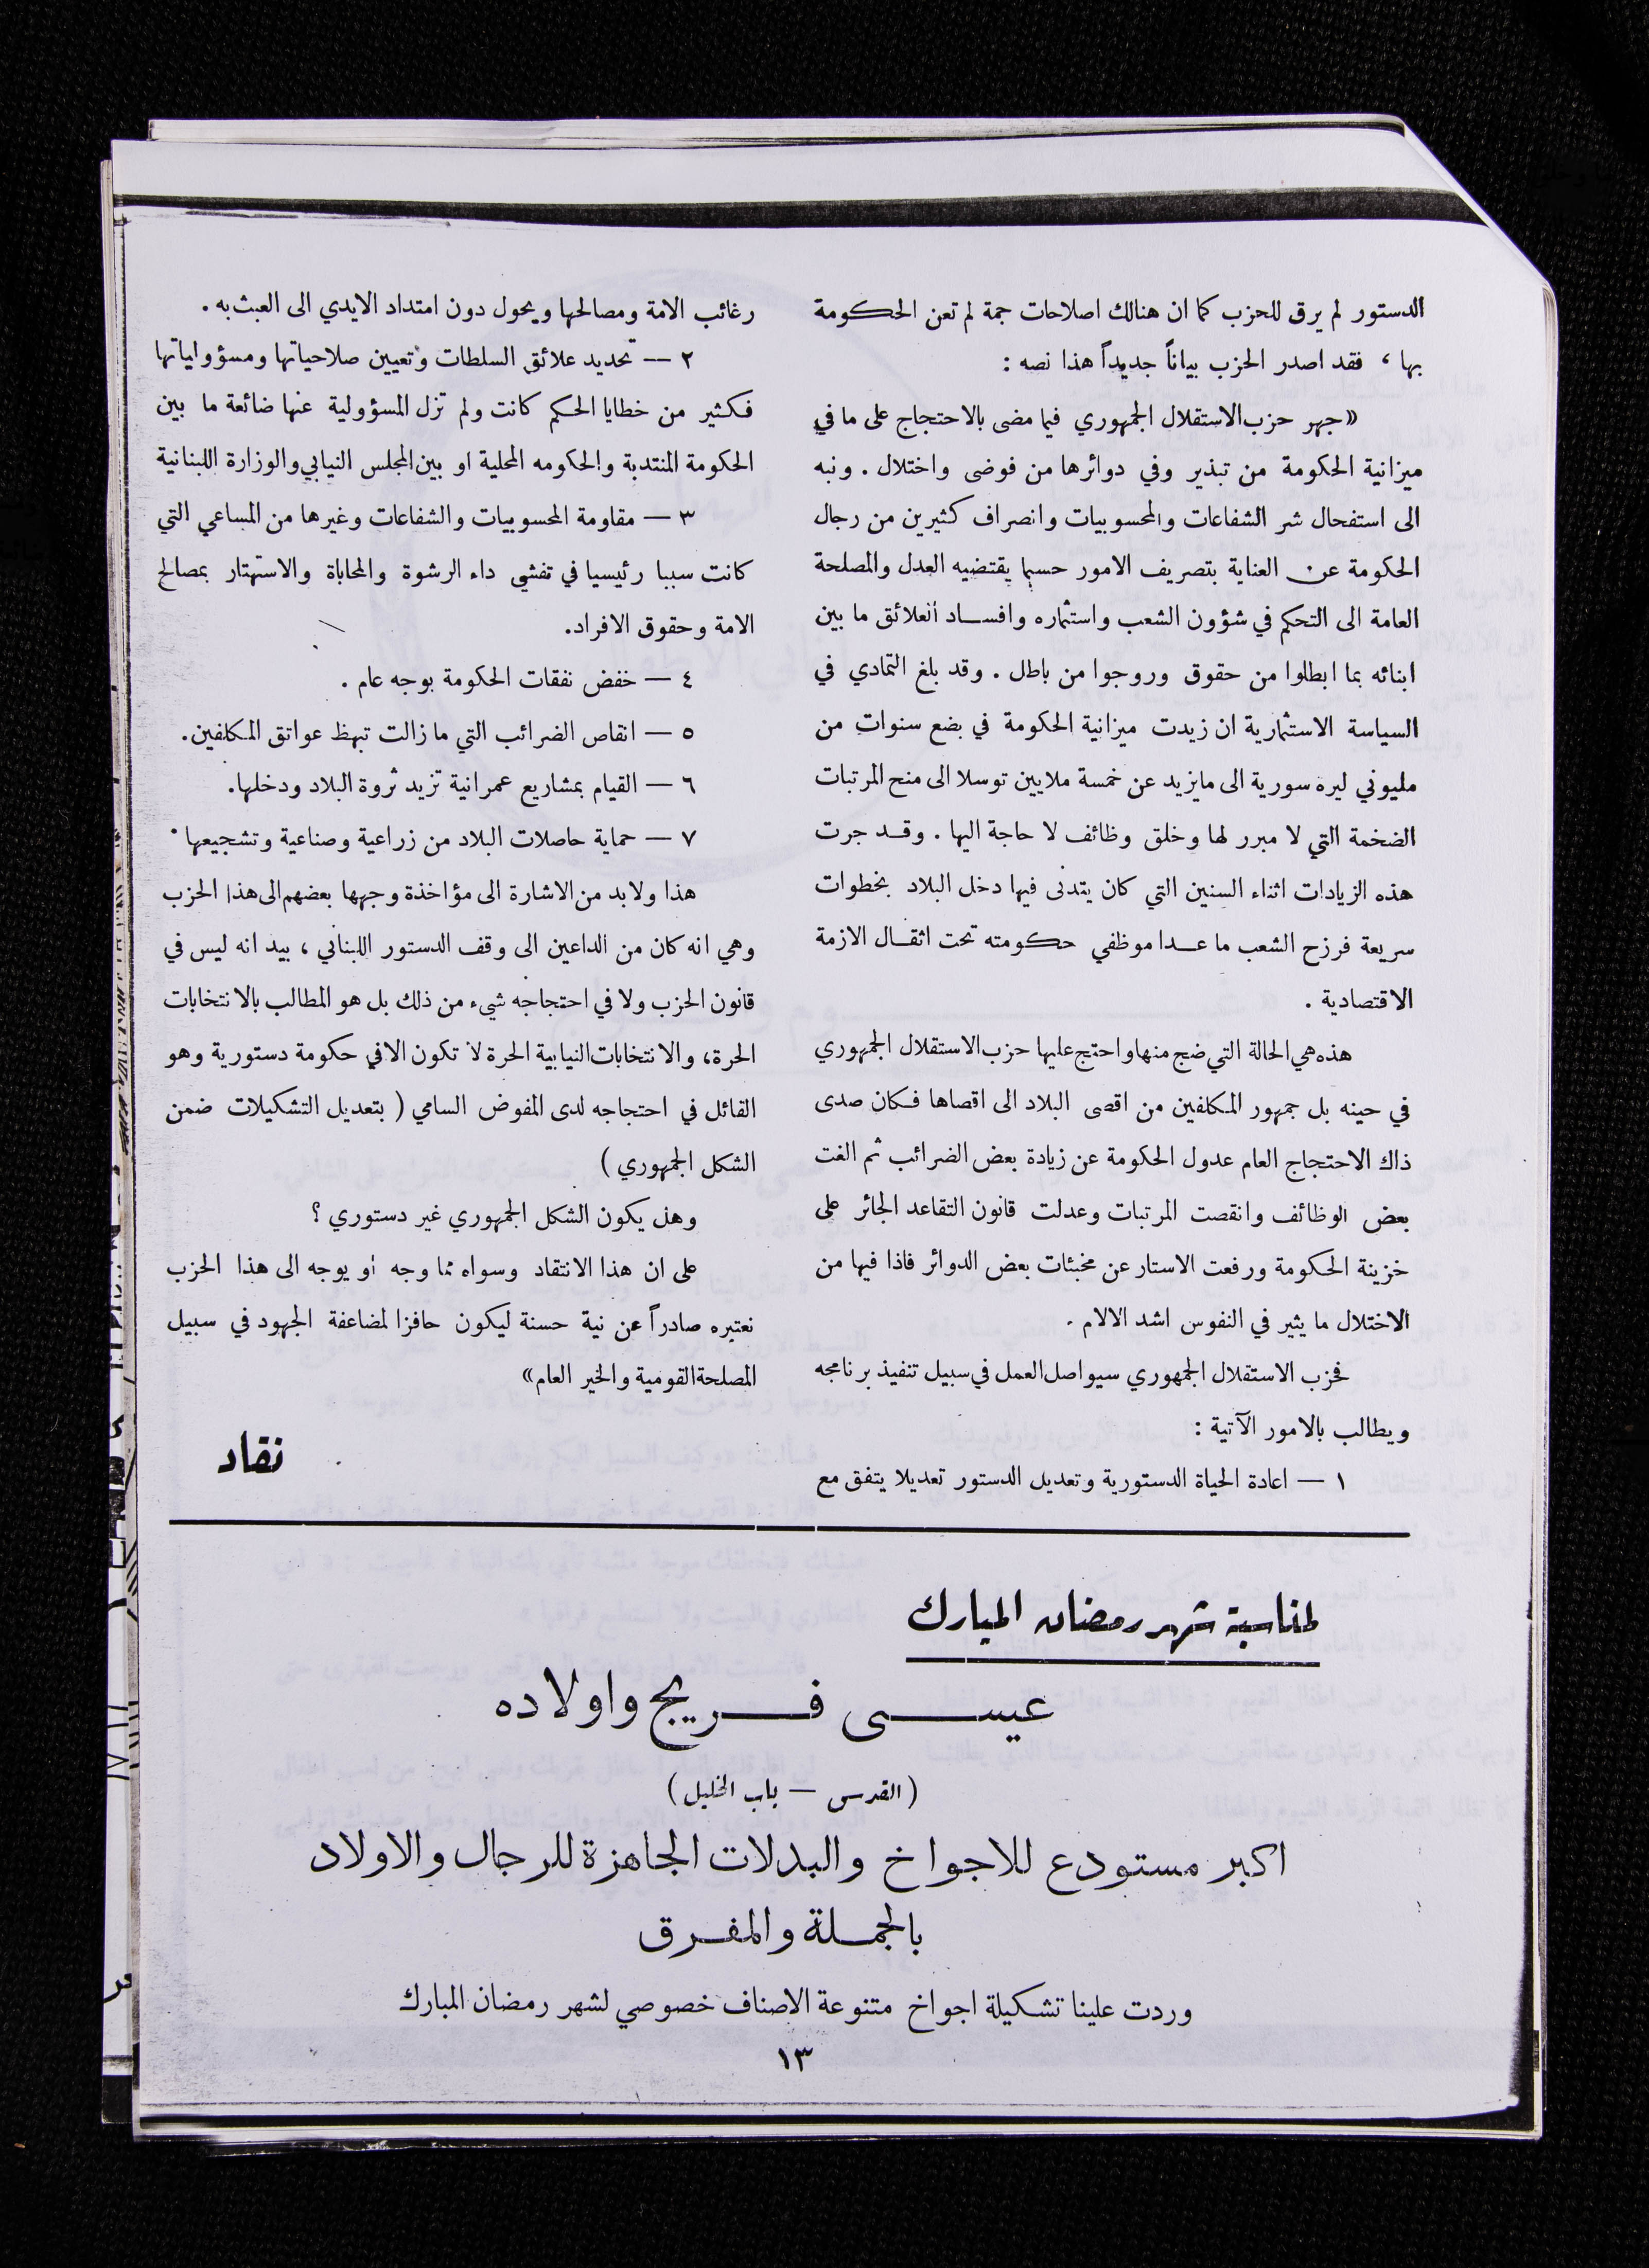 الدستور لم يرق للحزب كما ان هنالك اصلاحات جمة لم تعن الحكومة
بها ، فقد اصدر الحزب بياناً جديداً هذا نصه :
«جهر حزب الاستقلال الجمهوري فيما مضى بالاحتجاج على ما في
ميزانية الحكومة من تبذير وفي دوائرها من فوضى واختلال . ونبه
الى استفحال شر الشفاعات والمحسوبيات وانصراف كثيرين من رجال
الحكومة عن العناية بتصريف الامور حسبما يقتضيه العدل والمصلحة
العامة الى التحكم في شؤون الشعب واستثماره وافساد العلائق ما بين
ابنائه بما ابطلوا من حقوق وروجوا من باطل . وقد بلغ التمادي في
السياسة الاستثمارية ان زيدت ميزانية الحكومة في بضع سنوات من
مليوني ليره سورية الى مايزيد عن خمسة ملايين توسلا الى منح المرتبات
الضخمة التي لا مبرر لها وخلق وظائف لا حاجة اليها . وقد جرت
هذه الزيادات اثناء السنين التي كان يتدنى فيها دخل البلاد بخطوات
سريعة فرزح الشعب ما عدا موظفي حكومته تحت اثقال الازمة
الاقتصادية .
هذه هي الحالة التي ضج منها واحتج عليها حزب الاستقلال الجمهوري
في حينه بل جمهور المكلفين من اقصى البلاد الى اقصاها فكان صدى
ذاك الاحتجاج العام عدول الحكومة عن زيادة بعض الضرائب ثم الغت
بعض الوظائف وانقصت المرتبات وعدلت قانون التقاعد الجائر على
خزينة الحكومة ورفعت الاستار عن مخبئات بعض الدوائر فاذا فيها من
الاختلال ما يثير في النفوس اشد الالام .
فحزب الاستقلال الجمهوري سيواصل العمل في سبيل تنفيذ برنامجه
ويطالب بالامور الآتية :
١ — اعادة الحياة الدستورية وتعديل الدستور تعديلا يتفق مع
رغائب الامة ومصالحها ويحول دون امتداد الايدي الى العبث به .
٢ — تحديد علائق السلطات وتعيين صلاحياتها ومسؤولياتها
فكثير من خطايا الحكم كانت ولم تزل المسؤولية عنها ضائعة ما بين
الحكومة المنتدبة والحكومه المحلية او بين المجلس النيابي والوزارة اللبنانية
٣ — مقاومة المحسوبيات والشفاعات وغيرها من المساعي التي
كانت سببا رئيسيا في تفشي داء الرشوة والمحاباة والاستهتار بمصالح
الامة وحقوق الافراد.
٤ — خفض نفقات الحكومة بوجه عام .
٥ — انقاص الضرائب التي ما زالت تبهظ عواتق المكلفين.
٦ — القيام بمشاريع عمرانية تزيد ثروة البلاد ودخلها.
٧ — حماية حاصلات البلاد من زراعية وصناعية وتشجيعها .
هذا ولابد من الاشارة الى مؤاخذة وجهها بعضهم الى هذا الحزب
وهي انه كان من الداعين الى وقف الدستور اللبناني ، بيد انه ليس في
قانون الحزب ولا في احتجاجه شيء من ذلك بل هو المطالب بالانتخابات
الحرة، والانتخابات النيابية الحرة لا تكون الا في حكومة دستورية وهو
القائل في احتجاجه لدى المفوض السامي ( بتعديل التشكيلات ضمن
الشكل الجمهوري )
وهل يكون الشكل الجمهوري غير دستوري ؟
على ان هذا الانتقاد وسواه مما وجه او يوجه الى هذا الحزب
نعتبره صادراً عن نية حسنة ليكون حافزا لمضاعفة الجهود في سبيل
المصلحة القومية والخير العام»
نقاد
لمناسبة شهر رمضان المبارك
عيسى فريج واولاده
(القدس — باب الخليل)
اكبر مستودع للاجواخ والبدلات الجاهزة للرجال والاولاد
بالجملة والمفرق
وردت علينا تشكيلة اجواخ متنوعة الاصناف خصوصي لشهر رمضان المبارك
١٣